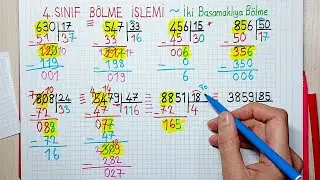 4. SINIF BÖLME İŞLEMİ ~ İki Basamaklıya Bölme
630 | 17   547 | 33   456 | 15   856 | 50
51   37   33   16   45   30   50   17
119   198   0   350
001   019   006   006
808 | 24   5479 | 47   8851 | 18   3859 | 85
72   33   47   72   4
088   077   165
72   47
16   282
027